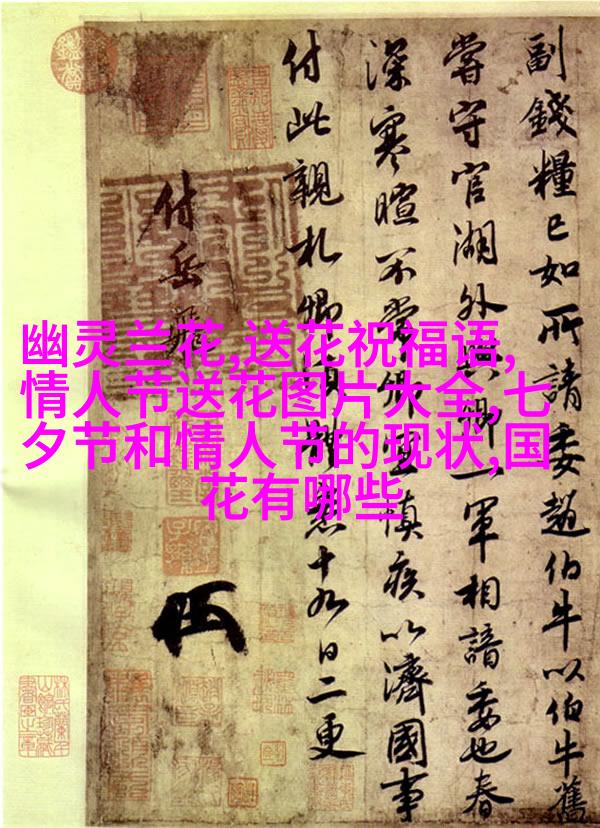 幽灵兰花,送花祝福语,
情人节送花图片大全,七
夕节和情人节的现状,国
花有哪些
副錢糧已如所請委趙伯牛以伯牛舊
嘗守官湖外與卿一軍相諳委也春
深寒暄不常卿宜慎疾以濟國事
付此親札卿須體悉十九日二更
付岳飛